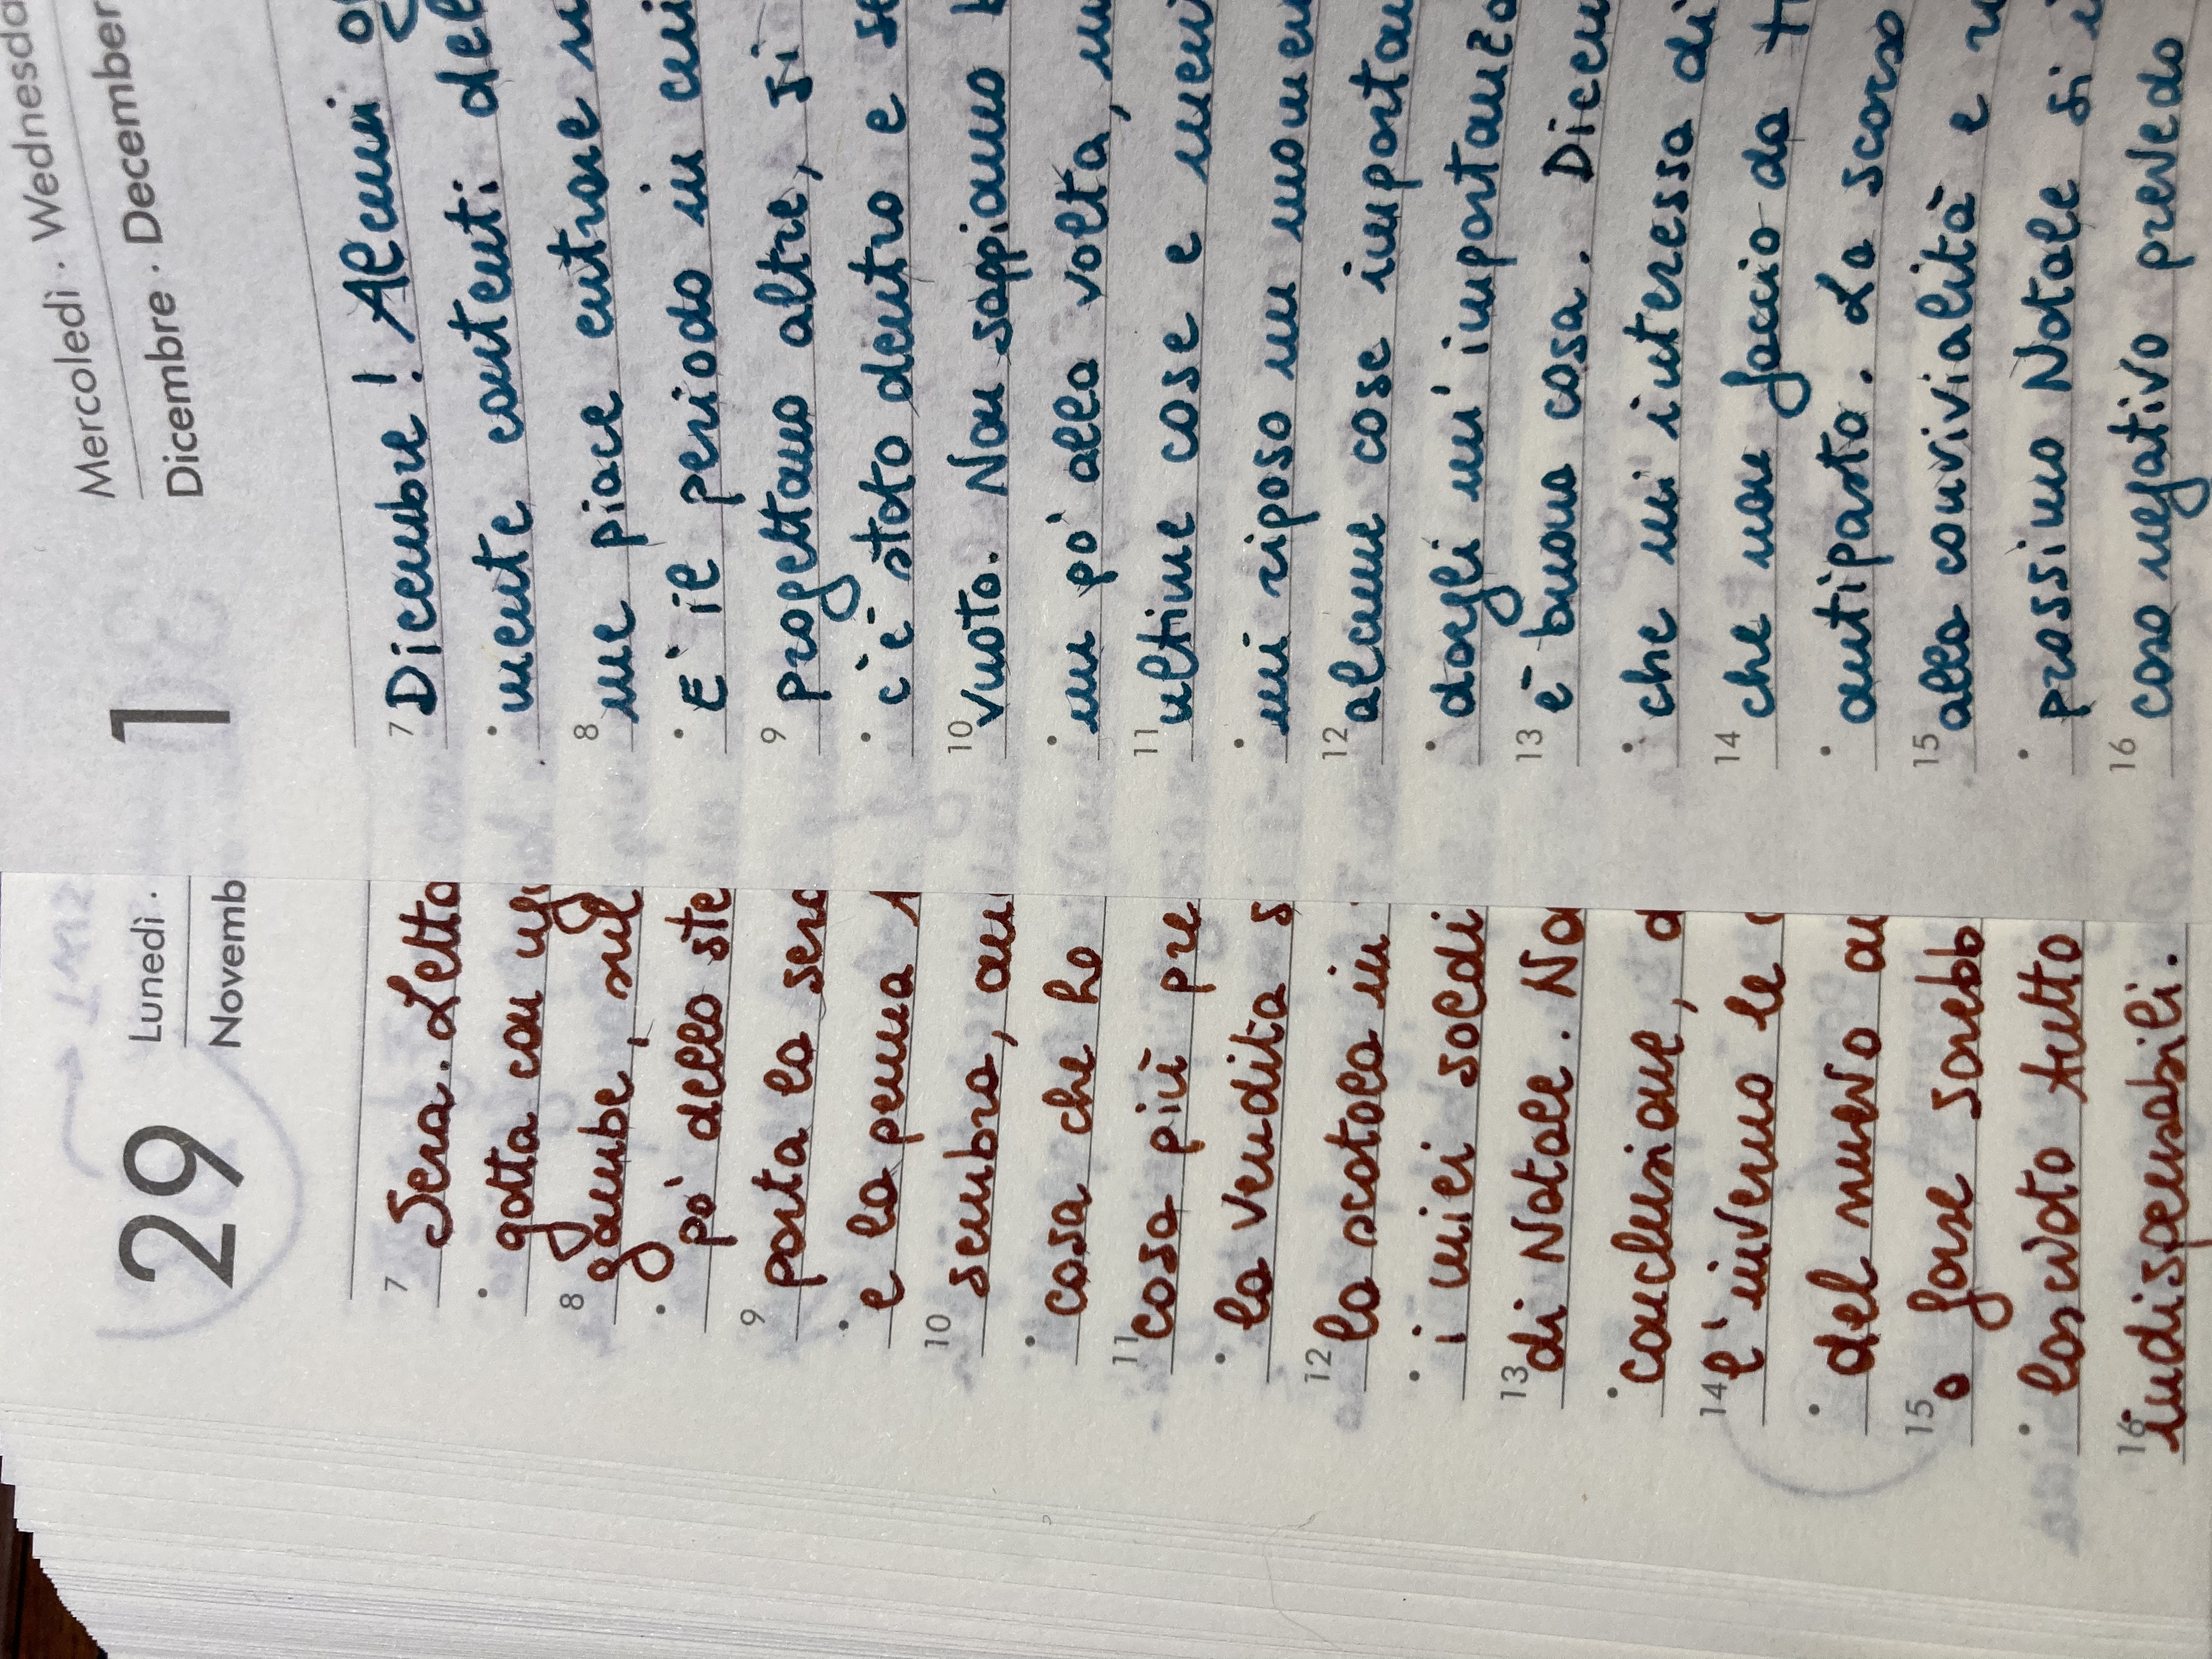 29
Lunedì ·
Novemb
7 Sera. Letto
gotta con
8 gambe, sul
po' dello ste
9 porta la sera
e la penna
10 sembra, an
cosa che ho
11 cosa più pre
la vendita s
12 la scatola in
i miei soldi
13 di Natale. No
conclusione, a
14 l'inverno le
del nuovo an
15 o forse sarebb
lasciato tutto
16 indispensabili.
1
Mercoledì · Wednesda
Dicembre · December
7 Dicembre! Alcuni og
mente contenti del
8 me piace entrare
E' il periodo in cui
9 progettano altre, si
c'è stato dentro e se
10 vuoto. Non sappiamo
un po' alla volta,
11 ultime cose e
mi riposo un momen
12 alcune cose importan
dargli un'importanza
13 è buona cosa. Dicem
che mi interessa di
14 che non faccio da
antipasto. La scorso
15 alla convivialità e
prossimo Natale si
16 caso negativo prevedo